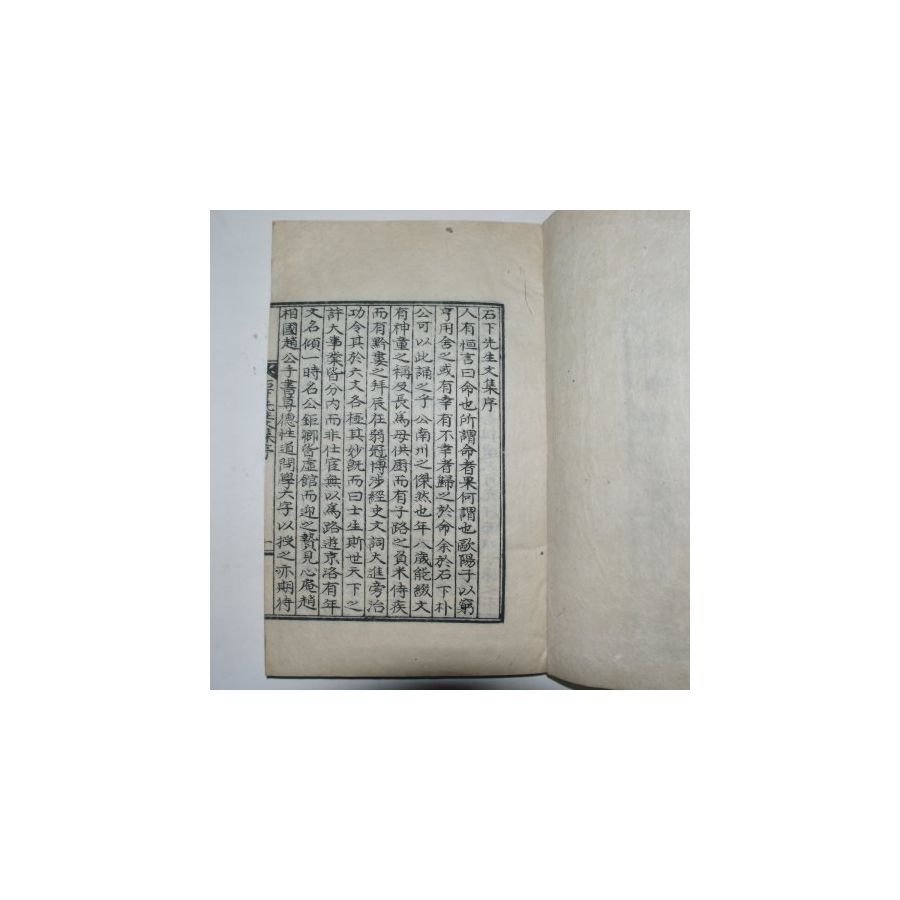 石下先生文集序
人有恒言曰命也所謂命者果何謂也歐陽子以窮
亨用舍之或有幸有不幸者歸之於命余於石下朴
公可以此誦之乎公南州之傑然也年八歲能綴文
有神童之稱及長爲母供廚而有子路之負米侍疾
而有黔婁之拜辰在弱冠博涉經史文詞大進旁治
功令其於六文各極其妙旣而曰士生斯世天下之
許大事業皆分內而非仕宦無以爲路遊京洛有年
文名傾一時名公鉅卿皆虛館而迎之贄見心庵趙
相國趙公手書尊德性道問學六字以授之亦期待
石下先生文集序